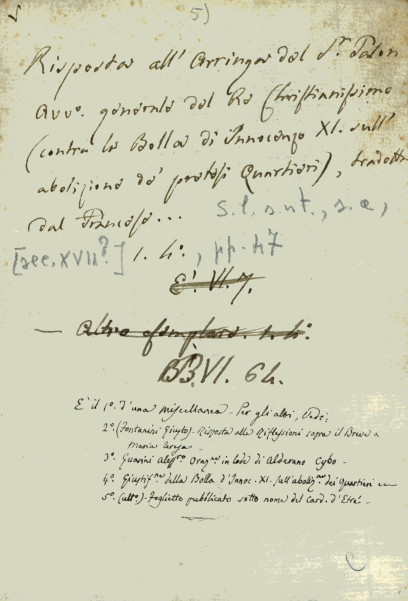 5)
Risposta all' Arringa del Sr. Talon
Avvo. generale del Re Christianissimo
(contra la Bolla di Innocenzo XI. sull'
abolizione de' pretesi Quartieri), tradotta
dal Francese... s.l.s.nt., s.a,
[sec. XVII?] 1. 4°., pp. 47
E. VI. 7.
— Altro esemplare. 1. 4°.
BB.VI. 64.
E' il 1°. d'una miscellanea - Per gli altri, Vedi:
2°. (Fontanini Giusto). Risposta alle Riflessioni sopra il Breve a
Maria
3°. Guarini Aless.ro Oraz.ne in lode di Alderano Cybo -
4°. Giustif.ne della Bolla d'Innoc. XI. sull'aboliz.ne dei Quartieri
5°. Foglietto pubblicato sotto nome del Card. d'Etré -